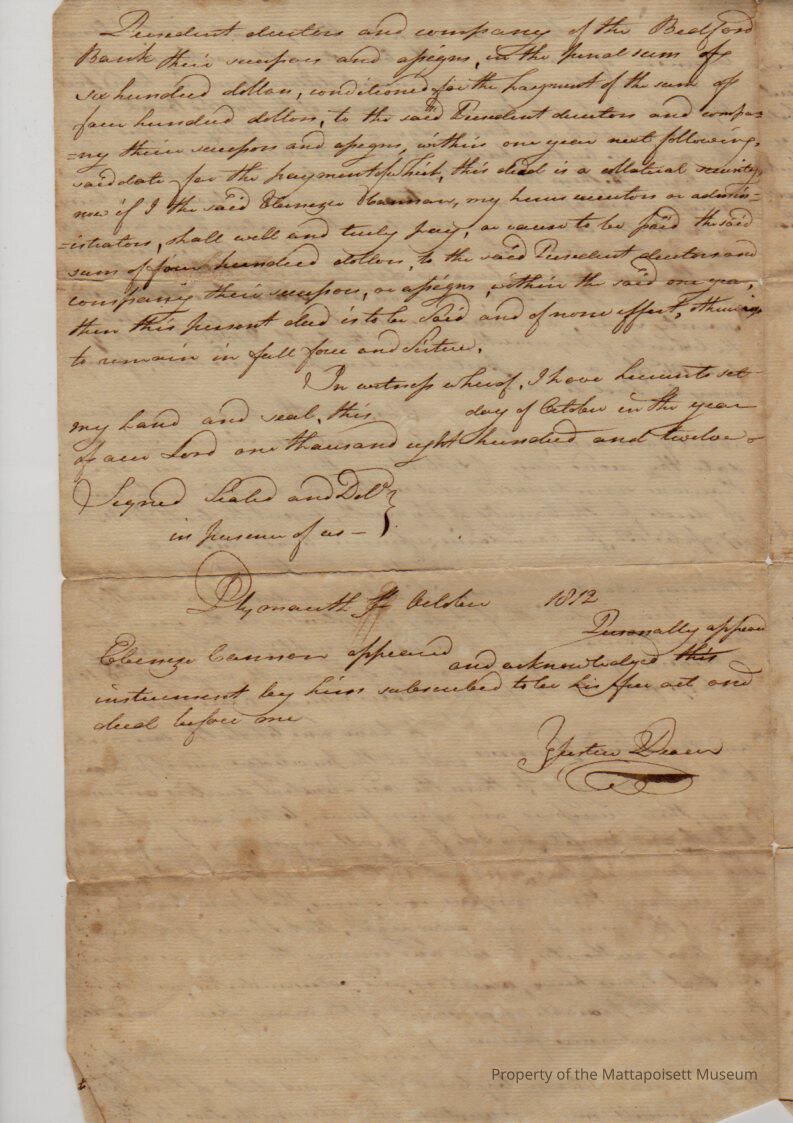 President directors and company of the Bedford
Bank their successors and assigns, in the penal sum of
six hundred dollars, conditioned for the payment of the sum of
four hundred dollars, to the said President directors and compa=
=ny their successors and assigns, within one year next following,
said date for the payment of which, this deed is a collatral security,
now if I the said Ebenezer Cannon, my heirs executors or admin=
=istrators, shall well and truly pay, or cause to be paid the said
sum of four hundred dollars, to the said President directors and
company their successors, or assigns, within the said one year,
then this present deed is to be void and of none effect, otherways
to remain in full force and virtue.
In witness whereof, I have hereunto set
my hand and seal, this day of October in the year
of our Lord one thousand eight hundred and twelve
Signed Sealed and Deld
in presence of us —
Plymouth Ss October 1812
Personally appear
Ebenezer Cannon appeared and acknowledged this
instrument by him subscribed to be his free act and
deed before me
Justice Peace
Property of the Mattapoisett Museum